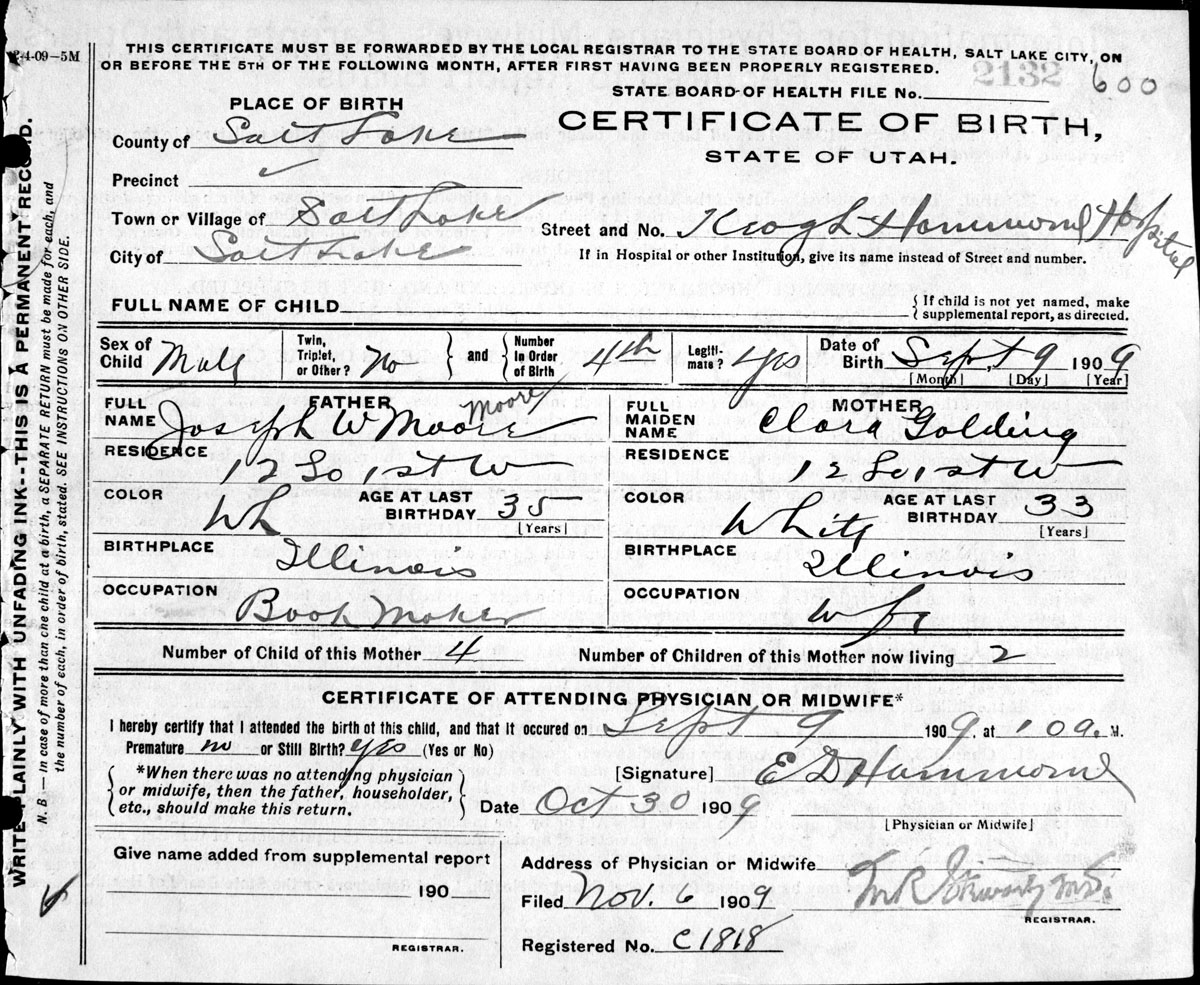 2-4-09-5M
THIS CERTIFICATE MUST BE FORWARDED BY THE LOCAL REGISTRAR TO THE STATE BOARD OF HEALTH, SALT LAKE CITY, ON
OR BEFORE THE 5TH OF THE FOLLOWING MONTH, AFTER FIRST HAVING BEEN PROPERLY REGISTERED.
2132
600
STATE BOARD OF HEALTH FILE No.
PLACE OF BIRTH
CERTIFICATE OF BIRTH,
STATE OF UTAH.
County of Salt Lake
Precinct
Town or Village of Salt Lake
Street and No. Keogh Hammond Hospital
City of Salt Lake
If in Hospital or other Institution, give its name instead of Street and number.
FULL NAME OF CHILD
{If child is not yet named, make
supplemental report, as directed.
Sex of Child Male
Twin, Triplet, or Other? No
and
Number in Order of Birth 4th
Legitimate? Yes
Date of Birth Sept, 9 1909
[Month] [Day] [Year]
FATHER
FULL NAME Joseph W Moore Moore
RESIDENCE 12 So 1st W
COLOR Wh
AGE AT LAST BIRTHDAY 35
[Years]
BIRTHPLACE Illinois
OCCUPATION Book Maker
MOTHER
FULL MAIDEN NAME Clara Golding
RESIDENCE 12 So 1st W
COLOR White
AGE AT LAST BIRTHDAY 33
[Years]
BIRTHPLACE Illinois
OCCUPATION
Number of Child of this Mother 4
Number of Children of this Mother now living 2
CERTIFICATE OF ATTENDING PHYSICIAN OR MIDWIFE*
I hereby certify that I attended the birth of this child, and that it occured on Sept 9 1909, at 1 09a. M.
Premature no or Still Birth? yes (Yes or No)
*When there was no attending physician
or midwife, then the father, householder,
etc., should make this return.
[Signature] E D Hammond
Date Oct 30 1909
[Physician or Midwife]
Give name added from supplemental report
190
REGISTRAR.
Address of Physician or Midwife
Filed Nov. 6 1909
REGISTRAR.
Registered No. C1818
WRITE PLAINLY WITH UNFADING INK--THIS IS A PERMANENT RECORD.
N. B.— In case of more than one child at a birth, a SEPARATE RETURN must be made for each, and
the number of each, in order of birth, stated. SEE INSTRUCTIONS ON OTHER SIDE.